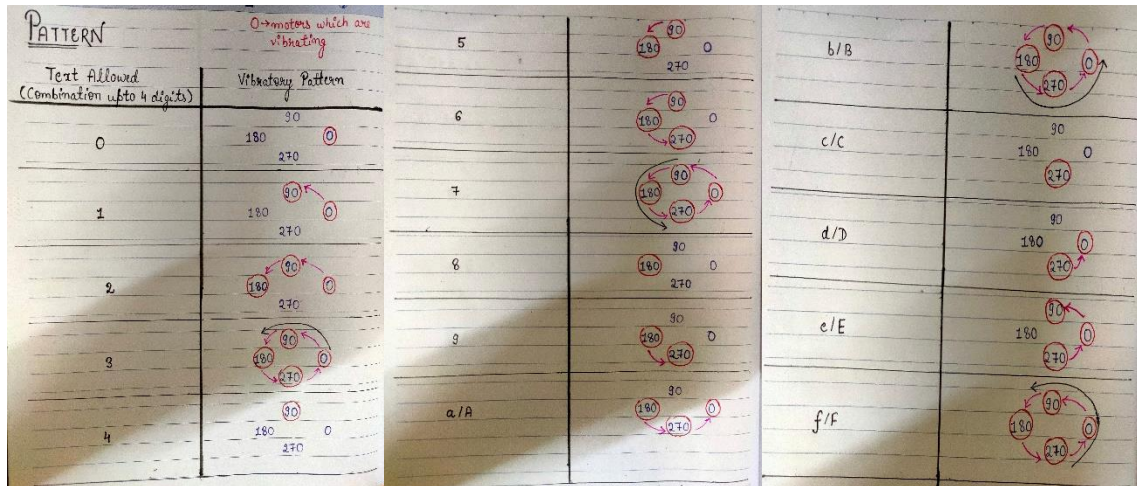 PATTERN
O→motors which are
vibrating
Text Allowed
(Combination upto 4 digits)
Vibratory Pattern
0
90
180 0
270
1
90
180 0
270
2
90
180 0
270
3
90
180 0
270
4
90
180 0
270
5
90
180 0
270
6
90
180 0
270
7
90
180 0
270
8
90
180 0
270
9
90
180 0
270
a/A
90
180 0
270
b/B
90
180 0
270
c/C
90
180 0
270
d/D
90
180 0
270
e/E
90
180 0
270
f/F
90
180 0
270